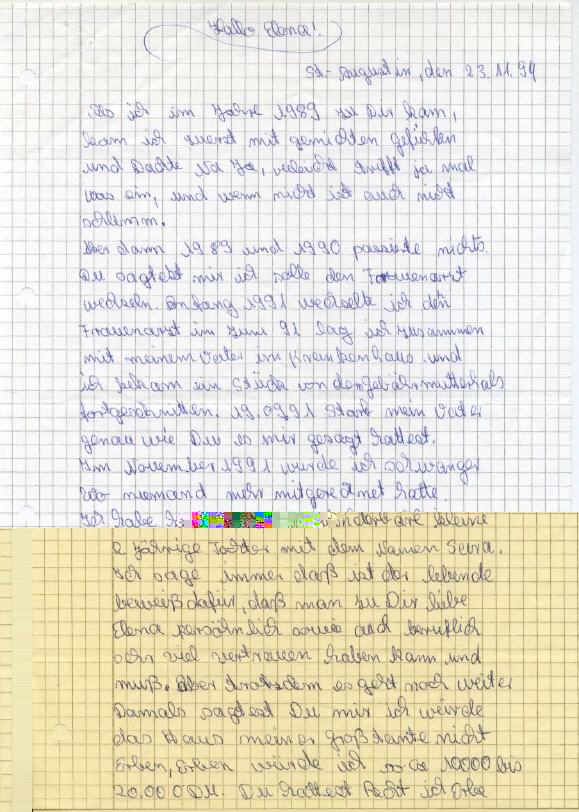 Hallo Elena!
St.- Augustin, den 23.11.94
Als ich im Jahre 1989 zu Dir kam,
kam ich zuerst mit gemichten gefühlen
und Dachte Na Ja, vieleicht trifft ja mal
was ein, und wenn nicht ist auch nicht
schlimm.
Aber dann 1989 und 1990 passierte nichts.
Du sagtest mir ich solle den Frauenarzt
wechseln. Anfang 1991 wechselte ich den
Frauenarzt im Juni 91 lag ich zusammen
mit meinem Vater im Krankenhaus und
ich bekam ein Stück von der gebährmutterhals
fortgeschnitten. 19.0991 Starb mein Vater
genau wie Du es mir gesagt hattest.
Im November 1991 wurde ich schwanger
wo niemand mehr mitgerechnet hatte
Ich habe kleine
2 Jährige Tochter mit dem Namen
Ich sage immer daß ist der lebende
beweiß dafür, daß man zu Dir liebe
Elena persöhnlich sowie auch beruflich
sehr viel vertrauen haben kann und
muß. Aber trotzdem es geht noch weiter
Damals sagtest Du mir ich würde
das Haus meiner großtante nicht
Erben, Erben würde ich so ca 10000 bis
20.000DM. Du hattest Recht ich Erbe